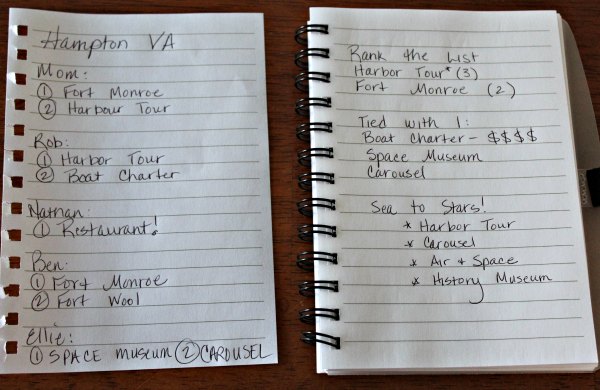 Hampton VA
Mom:
① Fort Monroe
② Harbour Tour
Rob:
① Harbor Tour
② Boat Charter
Nathan:
① Restaurant!
Ben:
① Fort Monroe
② Fort Wool
Ellie:
① SPACE museum ② CAROUSEL
Rank the List
Harbor Tour* (3)
Fort Monroe (2)
Tied with 1:
Boat Charter - $$$$
Space Museum
Carousel
Sea to Stars!
* Harbor Tour
* Carousel
* Air + Space
* History Museum